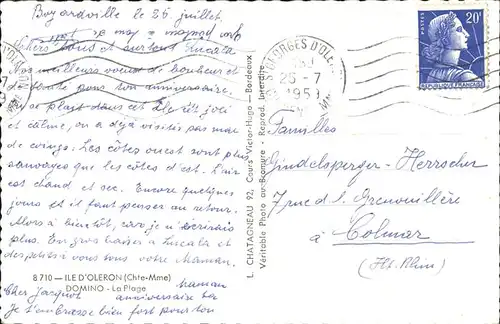 Boyardville le 25 juillet,
Chers tous et surtout Lucala
Nos meilleurs voeux de bonheur et
de santé pour ton anniversaire.
se plait dans cet île, très joli
et calme, on a déjà visités pas mal
de coings. Les côtes ouest sont plus
sauvages que les côtes d'est. L'air
est chaud et sec. Encore quelques
jours et il faut penser au retour.
Alors à bientôt, car je n'écrirais
plus. En gros baiser à Lucala et
des petits à vous tous votre Maman.
8710 — ILE D'OLERON (Chte-Mme)
DOMINO - La Plage
maman
Cher Jacquot anniversaire
Je t'embrasse bien fort pour ton
L. CHATAGNEAU 92, Cours Victor-Hugo - Bordeaux
Véritable Photo au Bromure - Reprod. Interdite
ST GEORGES D'OLE
25-7
1959
POSTES
20F
REPUBLIQUE FRANÇAISE
Familles
Gindelsperger-Herrscher
7 rue d. s. Grenouillère
à Colmar
(Ht. Rhin)